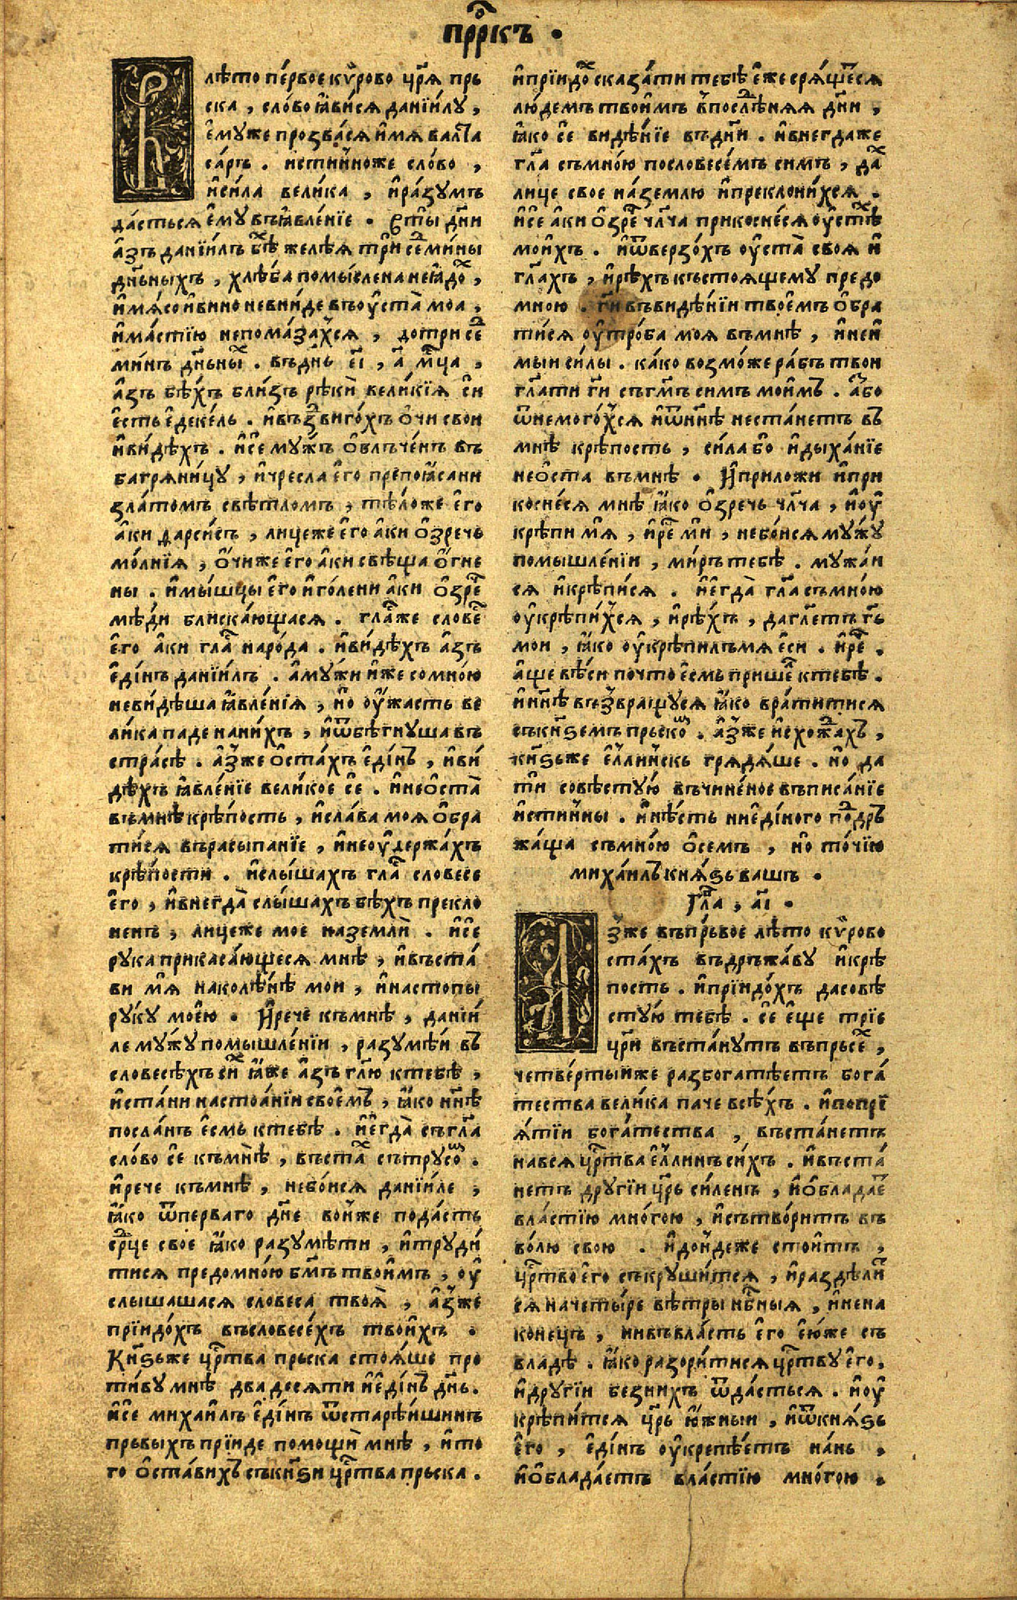 прⷪ҇ркъ .
Влѣто пе́рвое кѵ́рово цр҃я пръ
ска , сло́во ꙗ҆ви́ся данїи́лу ,
є҆му́же прозва́ся и҆́мя валта
са́ръ . и҆сти́нноже сло́во ,
и҆си́ла вели́ка , и҆ра́зумъ
да́сться є҆му́ въꙗ҆вле́нїе . Вты̀ дн҃и
а҆́зъ данїи́лъ бѣ́хъ желѣ́я трѝ седми́ны
дн҃ьныхъ , хлѣ́ба помы́слена неꙗ҆до́хъ ,
и҆мя́со и҆вино̀ невни́де въоу҆ста̀ моа̀ ,
и҆ма́стїю непомаза́хся , дотри се
ми́нъ дн҃ьны́хъ . въдн҃ь є҃і , а҃ мⷭ҇ца ,
а҆́зъ бѣ́хъ бли́зъ рѣкѝ вели́кїя си
є҆́сть є҆деке́ль . и҆въздвиго́хъ о҆́чи свои
и҆ви́дѣхъ . и҆сѐ му́жъ о҆блъче́нъ въ
багряни́цу , и҆чресла є҆го̀ препоꙗ҆сани
зла́томъ свѣ́тломъ , тѣ́ложе є҆го̀
а҆́ки дарси́съ , лице́же є҆го̀ а҆́ки о҆зре́чь
мо́лнїя , о҆́чиже є҆го̀ а҆́ки свѣща о҆́гне
ны . и҆мы́шцы є҆го̀ и҆го́лени а҆́ки о҆зре́ⷱ҇
мѣ́ди блиска́ющася . гла́сже слове́съ
є҆го̀ а҆́ки гла́съ наро́да . и҆ви́дѣхъ а҆́зъ
є҆ди́нъ данїи́лъ . а҆му́жи и҆́же со мно́ю
неви́дѣша ꙗ҆вле́нїя , но оу҆́жасть ве
ли́ка паде нани́хъ , и҆ѿбѣ́гнуша въ
стра́сѣ . а҆́зже о҆ста́хъ є҆ди́нъ , и҆ви
дѣхъ ꙗ҆вле́нїе вели́кое сѐ . и҆неоста̀
въмнѣ̀ крѣ́пость , и҆сла́ва моя̀ о҆бра
ти́ся върасыпа́нїе , и҆неоу҆держа́хъ
крѣ́пости . и҆слы́шахъ гла́съ словесе
є҆го̀ , и҆внегда̀ слы́шахъ бѣ́хъ прекло
не́нъ , лице́же моѐ наземлѝ . и҆сѐ
рука прикаса́ющеся мнѣ̀ , и҆въста́
ви мя̀ наколѣ́нѣ мои , и҆настопы
руку̀ мое́ю . И҆рече къмнѣ̀ , данїи
ле му́жу помышле́нїи , разумѣ́и въ
словесѣ́хъ си́хъ ꙗ҆́же а҆́зъ гл҃ю ктебѣ̀ ,
и҆ста́ни настоа́нїи свое́мъ , ꙗ҆ко ны́нѣ
по́сланъ є҆́смь ктебѣ̀ . и҆є҆гда̀ съгл҃а
сло́во сѐ къмнѣ̀ , въста́хъ сътру́сомъ .
и҆рече къмнѣ̀ , небо́ися данїи́ле ,
ꙗ҆́ко ѿпе́рваго дн҃е во́ньже пода́сть
ср҃це своѐ ꙗ҆́ко разумѣ́ти , и҆труди́
тися предомно́ю бг҃омъ твои́мъ , оу҆
слы́шашася словеса̀ твоя̀ , а҆́зже
прїидо́хъ въсловесе́хъ твои́хъ .
Кн҃ѕьже цр҃тва пръска стоя́ше про
ти́ву мнѣ̀ два́десяти и҆є҆ди́нъ дн҃ь .
и҆сѐ михаи́лъ є҆ди́нъ ѿстарѣ́ишинъ
пръвы́хъ прїи́де помощѝ мнѣ̀ , и҆то
го о҆ста́вихъ съкн҃ѕи цр҃тва пръска .
и҆прїидо́хъ сказа́ти тебѣ̀ є҆́же сря́щеся
лю́демъ твои́мъ впослѣ́дняя дн҃и ,
ꙗ҆́ко сѐ видѣ́нїе въдн҃и . и҆внегда́же
гл҃а съмно́ю посло́весе́мъ симъ , да́хъ
лице своѐ на́землю и҆преклони́хся .
и҆сѐ а҆ки о҆зре́ⷱ҇ чл҃ча прикосне́ся оу҆стнѣ
мои́хъ . и҆ѿверзо́хъ оу҆ста̀ своя̀ и҆
гл҃ахъ , и҆рѣ́хъ къстоящему предо
мно́ю . гн҃и въвидѣ́нїи твое́мъ о҆бра
ти́ся оу҆тро́ба моя̀ въмнѣ̀ , и҆неи
мыи си́лы . ка́ко возмо́же ра́бъ твои
гл҃ати гн҃и съгм҃ъ симъ мои́мъ . а҆́зъбо
ѿнемого́хся и҆ѿнн҃ѣ неста́нетъ въ
мнѣ крѣ́пость , си́ла бо и҆дыха́нїе
нео҆ста въмнѣ̀ . И҆приложи и҆при
косне́ся мнѣ ꙗ҆́ко о҆зречь чл҃ча , и҆оу҆
крѣпи мя̀ , и҆реⷱ҇ ми , небо́ися му́жу
помышле́нїи , ми́ръ тебѣ̀ . мужа́и
ся и҆крѣпи́ся . и҆є҆гда̀ гл҃а съмно́ю
оу҆крѣпи́хся , и҆рѣ́хъ , да гл҃етъ гь҃
мои , ꙗ҆́ко оу҆крѣпи́лъмя є҆си . и҆реⷱ҇ .
а҆ще вѣ́си почто є҆́смь прише́лъ ктебѣ̀ .
и҆нн҃ѣ възвращу́ся ꙗ҆́ко врати́тися
съкн҃ѕемъ пръско́мъ . а҆́зже и҆схожда́хъ ,
кн҃ѕьже є҆́ллинскъ гряд́яше . но да
ти совѣ́стую въчине́ное въписа́нїе
и҆сти́нны . и҆нѣ́сть ниє҆ди́ного подръ
жа́ща съмно́ю о҆семъ , но то́чїю
михаи́лъ кня́ѕь вашъ .
Гла , а҃і .
А҆зже въпръвое лѣ́то кѵ́рово
ста́хъ въдръжа́ву и҆крѣ
пость . и҆прїидо́хъ да совѣ
сту́ю тебѣ̀ . сѐ є҆ще трїе
цр҃и въста́нутъ въпръсе́хъ ,
четве́ртыиже разбогатѣ́етъ бога́
тества вели́ка паче всѣ́хъ . и҆попрї
я́тїи бога́тества , въста́нетъ
нався цр҃тва є҆́ллинъсихъ . и҆въста́
нетъ други́и цр҃ь си́ленъ , и҆о҆блада́етъ
вла́стїю мно́гою , и҆сътво́ритъ въ
во́лю свою̀ . и҆донде́же стои́тъ ,
цр҃тво є҆го̀ съкруши́тся , и҆раздѣли́т
ся начеты́ре вѣ́тры нб҃ныя , и҆нена
коне́цъ , нивъвла́сть є҆го̀ є҆ю́же съ
владѣ . ꙗ҆́ко разори́тися цр҃тву є҆го̀ ,
и҆други́и безнихъ ѿда́сться . и҆оу҆
крѣпи́тся цр҃ь ю҆́жныи , и҆ѿкня́ѕь
є҆го̀ , є҆ди́нъ оу҆крепѣ́етъ на́нь ,
и҆о҆блада́етъ вла́стїю мно́гою .